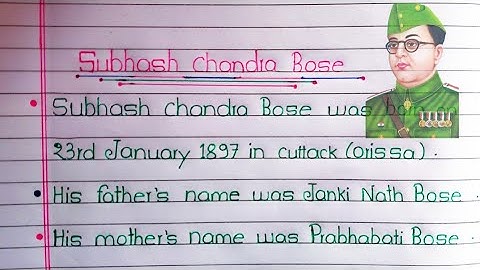 Subhash Chandra Bose
Subhash Chandra Bose was born on
23rd January 1897 in cuttack (orissa).
His father's name was Janki Nath Bose.
His mother's name was Prabhabati Bose.